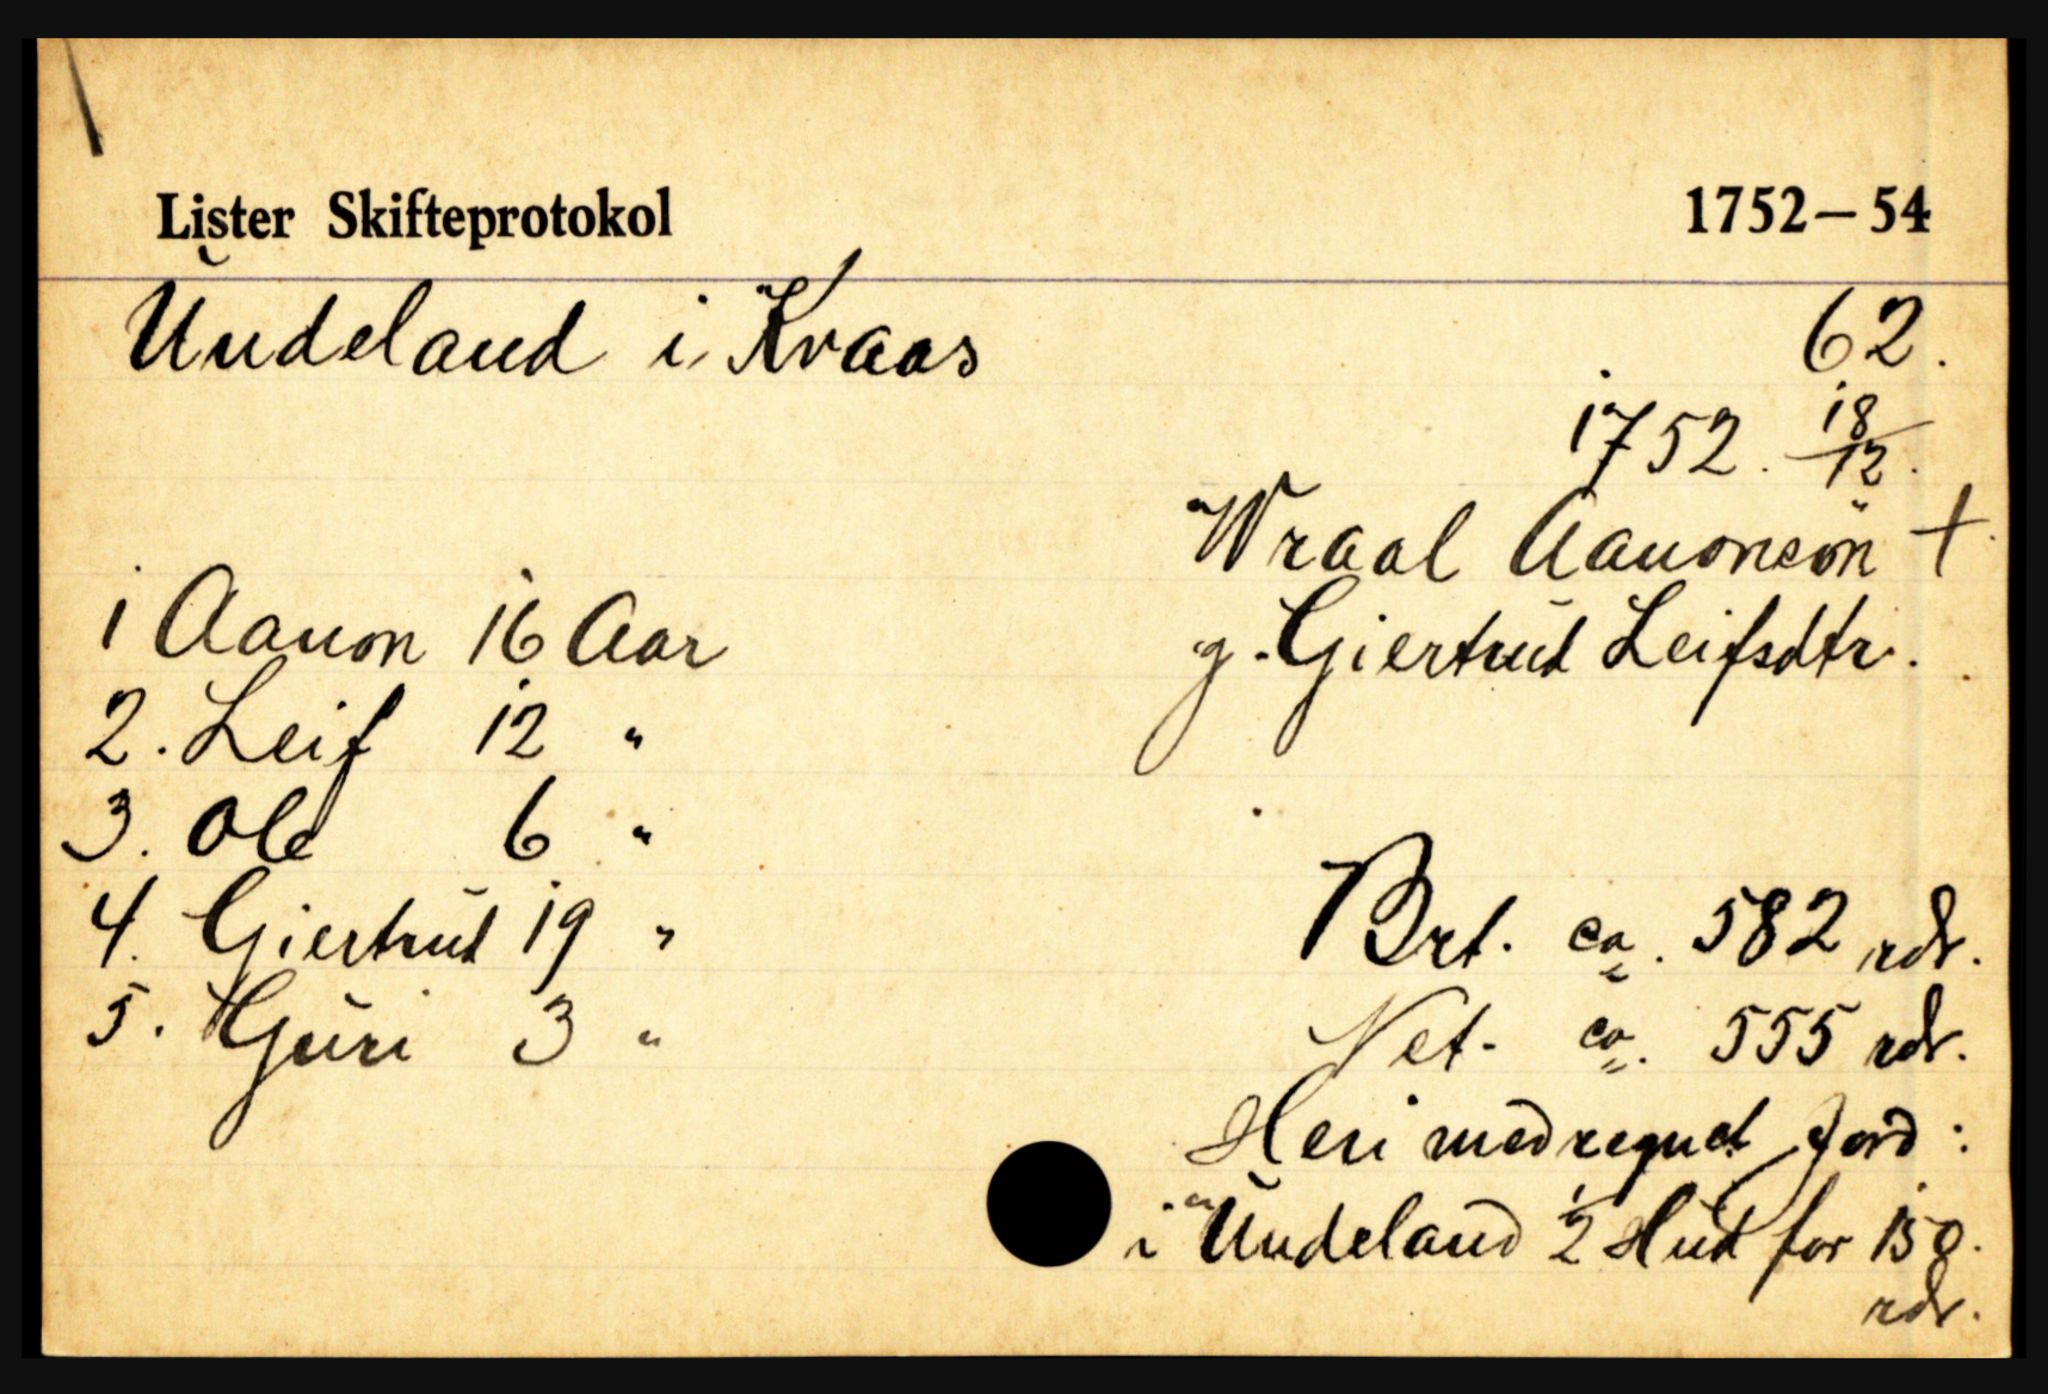 Lister Skifteprotokol 1752–54
Undeland i Kvaas 62.
1752. 18/12.
Wraal Aanonsön †.
g. Giertrud Leifsdtr.
1 Aanon 16 Aar
2. Leif 12 "
3. Ole 6 "
4. Giertrud 19 "
5. Guri 3 "
Brt. ca. 582 rdr.
Net. ca. 555 rdr.
Heri medregnet Jord:
i Undeland 1/2 Hud for 150.
rdr.